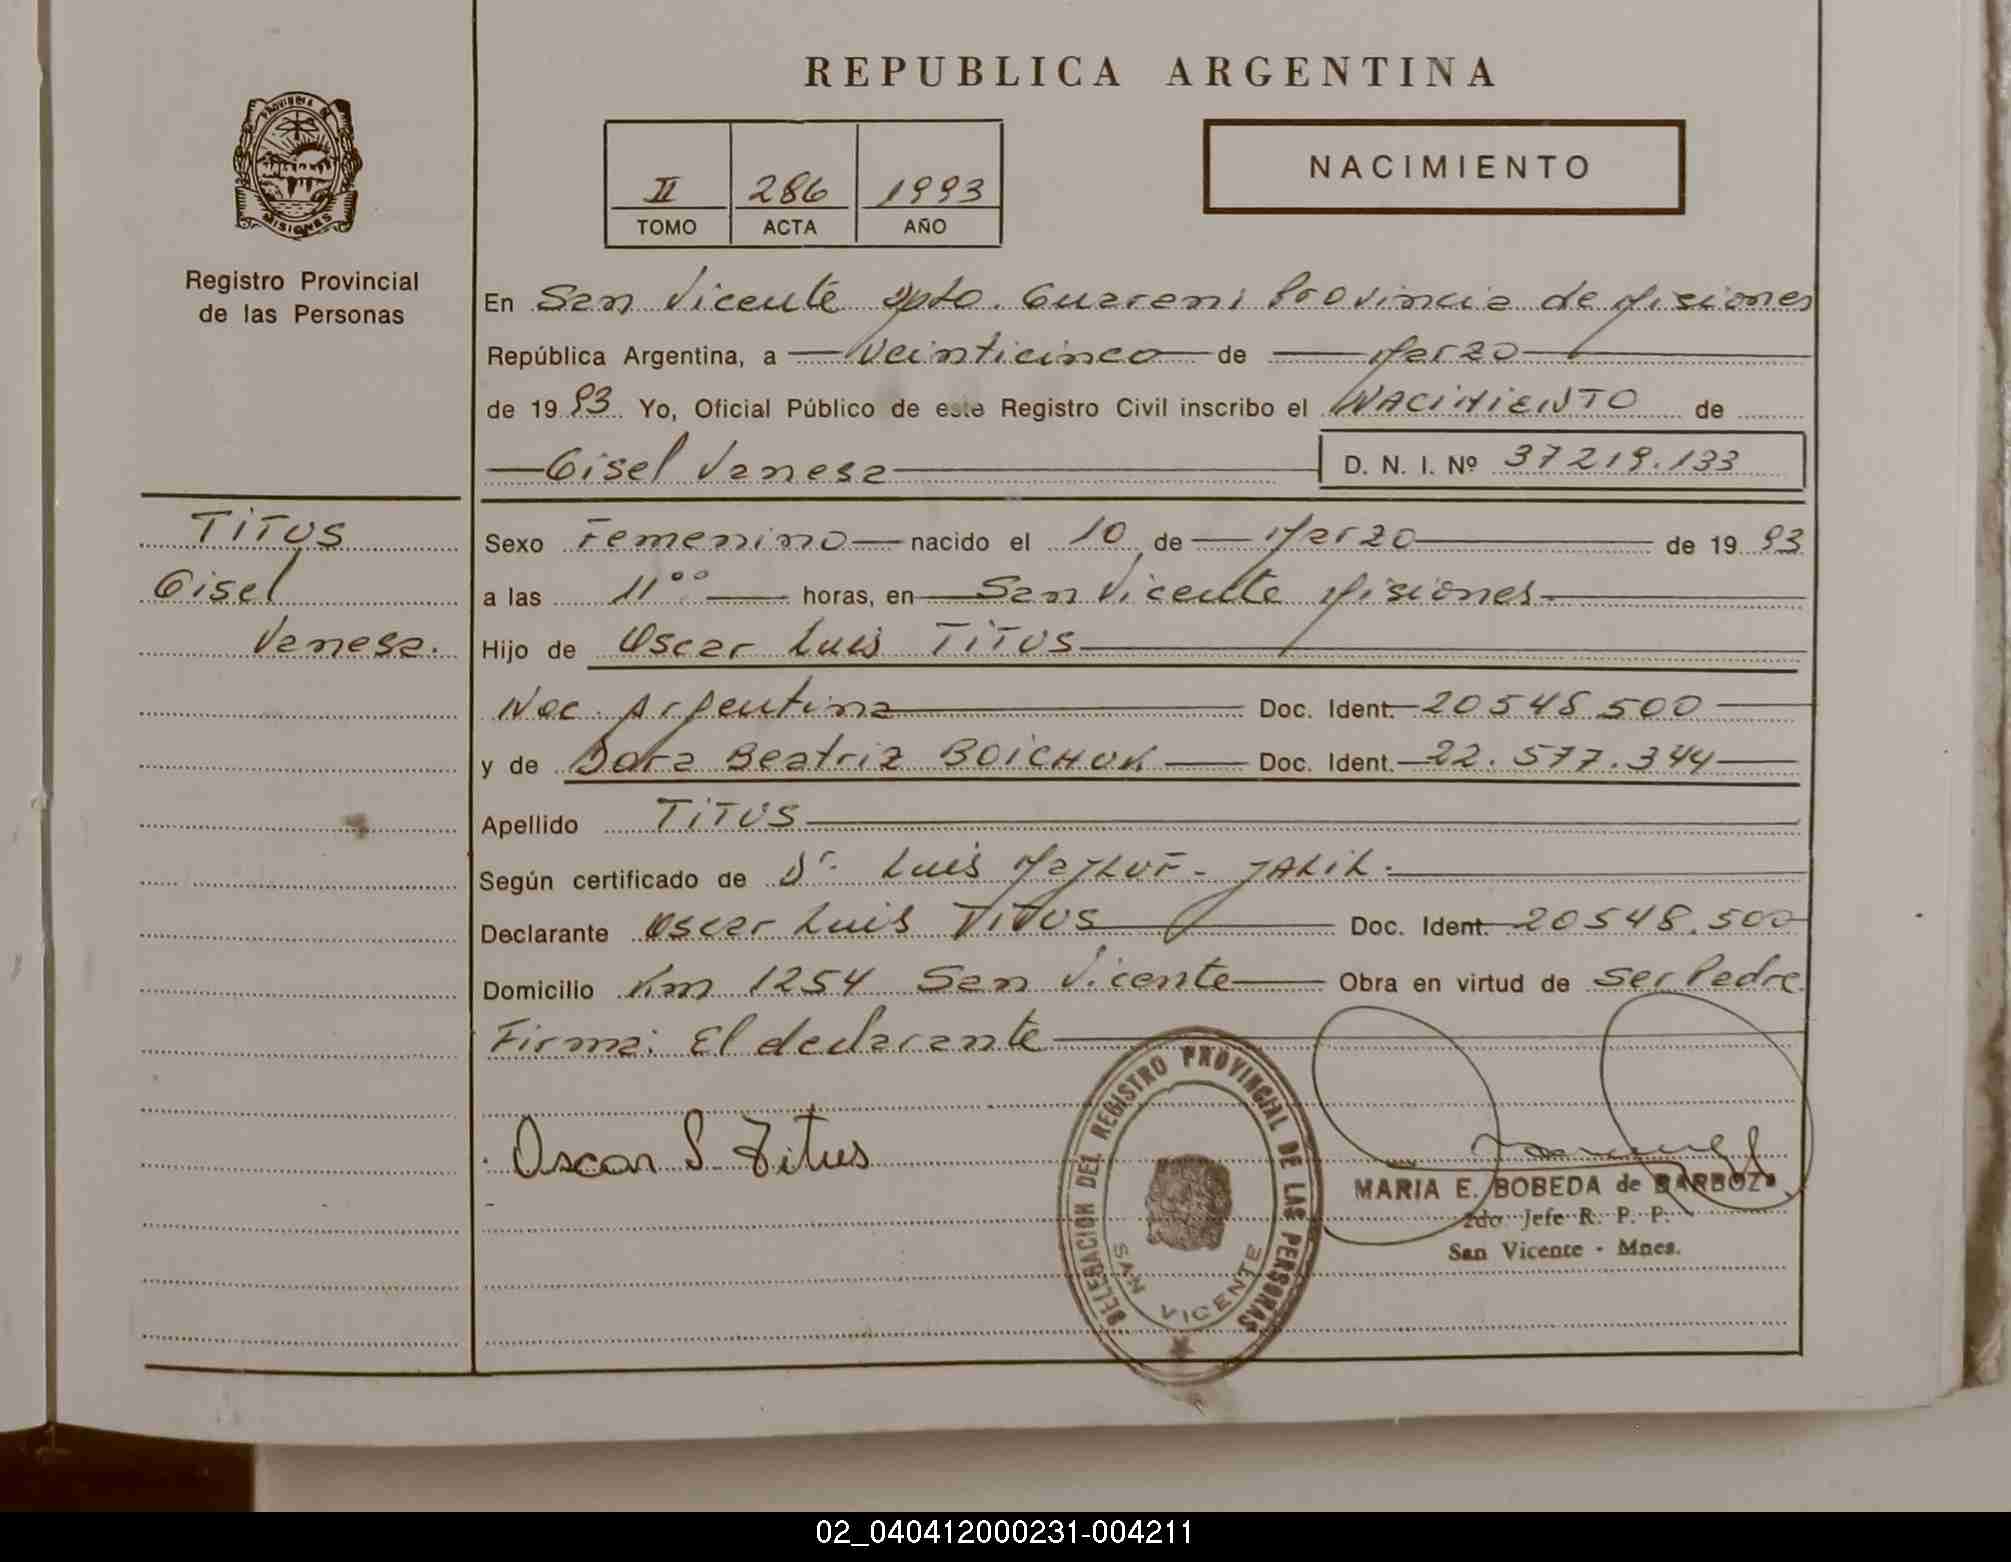 REPUBLICA ARGENTINA
PROVINCIA DE
MISIONES
Registro Provincial
de las Personas
II 286 1993
TOMO ACTA AÑO
NACIMIENTO
En San Vicente Dpto. Guarani Provincia de Misiones
República Argentina, a veinticinco de Marzo
de 1993 Yo, Oficial Público de este Registro Civil inscribo el NACIMIENTO de
Gisel Vanesa D. N. I. Nº 37219.133
TiTUS
Gisel
Vanesa.
Sexo Femenino nacido el 10 de Marzo de 1993
a las 11°° horas, en San Vicente Misiones
Hijo de Oscar Luis TiTUS
Nac. Argentina Doc. Ident. 20548500
y de Dora Beatriz BOICHUK Doc. Ident. 22.577.344
Apellido TiTUS
Según certificado de Dr. Luis MaJLUF - JALIL.
Declarante Oscar Luis TITUS Doc. Ident. 20548.500
Domicilio Km 1254 San Vicente Obra en virtud de ser Padre
Firma: El declarante
Oscar L Titus
DELEGACION DEL REGISTRO PROVINCIAL DE LAS PERSONAS
SAN VICENTE
MARIA E. BOBEDA de BARBOZA
2do Jefe R. P. P.
San Vicente - Mnes.
02_040412000231-004211